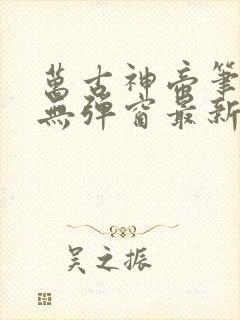 萬古神帝筆
無彈窗最新
吴之振